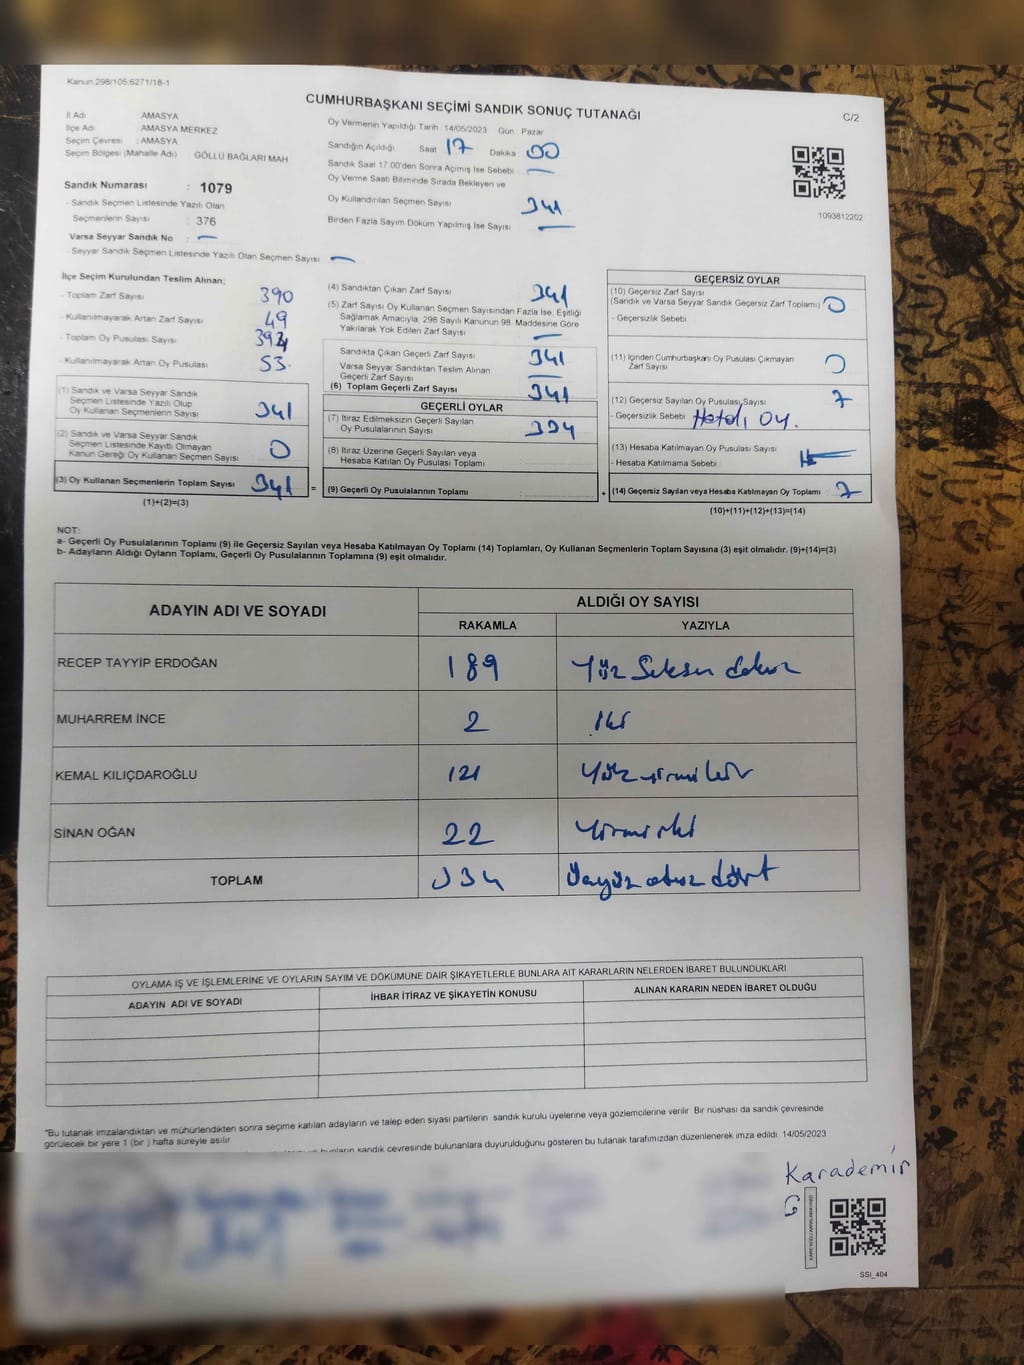 Kanun 298/105;6271/18-1
CUMHURBAŞKANI SEÇİMİ SANDIK SONUÇ TUTANAĞI
C/2
İl Adı AMASYA
İlçe Adı AMASYA MERKEZ
Seçim Çevresi : AMASYA
Seçim Bölgesi (Mahalle Adı) GÖLLÜ BAĞLARI MAH
Oy Vermenin Yapıldığı Tarih 14/05/2023 Gün : Pazar
Sandığın Açıldığı Saat 17 Dakika 00
Sandık Saat 17:00'den Sonra Açılmış İse Sebebi : —
Oy Verme Saati Bitiminde Sırada Bekleyen ve
Oy Kullandırılan Seçmen Sayısı 341
Birden Fazla Sayım Döküm Yapılmış İse Sayısı : —
1093812202
Sandık Numarası : 1079
- Sandık Seçmen Listesinde Yazılı Olan
Seçmenlerin Sayısı : 376
Varsa Seyyar Sandık No : —
- Seyyar Sandık Seçmen Listesinde Yazılı Olan Seçmen Sayısı : —
İlçe Seçim Kurulundan Teslim Alınan;
- Toplam Zarf Sayısı 390
- Kullanılmayarak Artan Zarf Sayısı 49
- Toplam Oy Pusulası Sayısı
- Kullanılmayarak Artan Oy Pusulası 53
(1) Sandık ve Varsa Seyyar Sandık
Seçmen Listesinde Yazılı Olup
Oy Kullanan Seçmenlerin Sayısı 341
(2) Sandık ve Varsa Seyyar Sandık
Seçmen Listesinde Kayıtlı Olmayan
Kanun Gereği Oy Kullanan Seçmen Sayısı 0
(3) Oy Kullanan Seçmenlerin Toplam Sayısı 341
(1)+(2)=(3)
(4) Sandıktan Çıkan Zarf Sayısı 341
(5) Zarf Sayısı Oy Kullanan Seçmen Sayısından Fazla İse, Eşitliği
Sağlamak Amacıyla, 298 Sayılı Kanunun 98. Maddesine Göre
Yakılarak Yok Edilen Zarf Sayısı —
Sandıkta Çıkan Geçerli Zarf Sayısı 341
Varsa Seyyar Sandıktan Teslim Alınan
Geçerli Zarf Sayısı —
(6) Toplam Geçerli Zarf Sayısı 341
GEÇERLİ OYLAR
(7) İtiraz Edilmeksizin Geçerli Sayılan
Oy Pusulalarının Sayısı 334
(8) İtiraz Üzerine Geçerli Sayılan veya
Hesaba Katılan Oy Pusulası Toplamı
= (9) Geçerli Oy Pusulalarının Toplamı :
GEÇERSİZ OYLAR
(10) Geçersiz Zarf Sayısı
(Sandık ve Varsa Seyyar Sandık Geçersiz Zarf Toplamı) 0
- Geçersizlik Sebebi
(11) İçinden Cumhurbaşkanı Oy Pusulası Çıkmayan
Zarf Sayısı 0
(12) Geçersiz Sayılan Oy Pusulası Sayısı 7
- Geçersizlik Sebebi Hatalı Oy.
(13) Hesaba Katılmayan Oy Pusulası Sayısı
- Hesaba Katılmama Sebebi
+ (14) Geçersiz Sayılan veya Hesaba Katılmayan Oy Toplamı : 7
(10)+(11)+(12)+(13)=(14)
NOT:
a- Geçerli Oy Pusulalarının Toplamı (9) ile Geçersiz Sayılan veya Hesaba Katılmayan Oy Toplamı (14) Toplamları, Oy Kullanan Seçmenlerin Toplam Sayısına (3) eşit olmalıdır. (9)+(14)=(3)
b- Adayların Aldığı Oyların Toplamı, Geçerli Oy Pusulalarının Toplamına (9) eşit olmalıdır.
ADAYIN ADI VE SOYADI
ALDIĞI OY SAYISI
RAKAMLA YAZIYLA
RECEP TAYYİP ERDOĞAN 189 Yüz Seksen dokuz
MUHARREM İNCE 2 iki
KEMAL KILIÇDAROĞLU 121 Yüz yirmi bir
SİNAN OĞAN 22 Yirmi iki
TOPLAM 334 Üçyüz otuz dört
OYLAMA İŞ VE İŞLEMLERİNE VE OYLARIN SAYIM VE DÖKÜMÜNE DAİR ŞİKAYETLERLE BUNLARA AİT KARARLARIN NELERDEN İBARET BULUNDUKLARI
ADAYIN ADI VE SOYADI İHBAR İTİRAZ VE ŞİKAYETİN KONUSU ALINAN KARARIN NEDEN İBARET OLDUĞU
*Bu tutanak imzalandıktan ve mühürlendikten sonra seçime katılan adayların ve talep eden siyasi partilerin sandık kurulu üyelerine veya gözlemcilerine verilir. Bir nüshası da sandık çevresinde
görülecek bir yere 1 (bir ) hafta süreyle asılır.
bunların sandık çevresinde bulunanlara duyurulduğunu gösteren bu tutanak tarafımızdan düzenlenerek imza edildi. 14/05/2023
Karademir
SSI_404